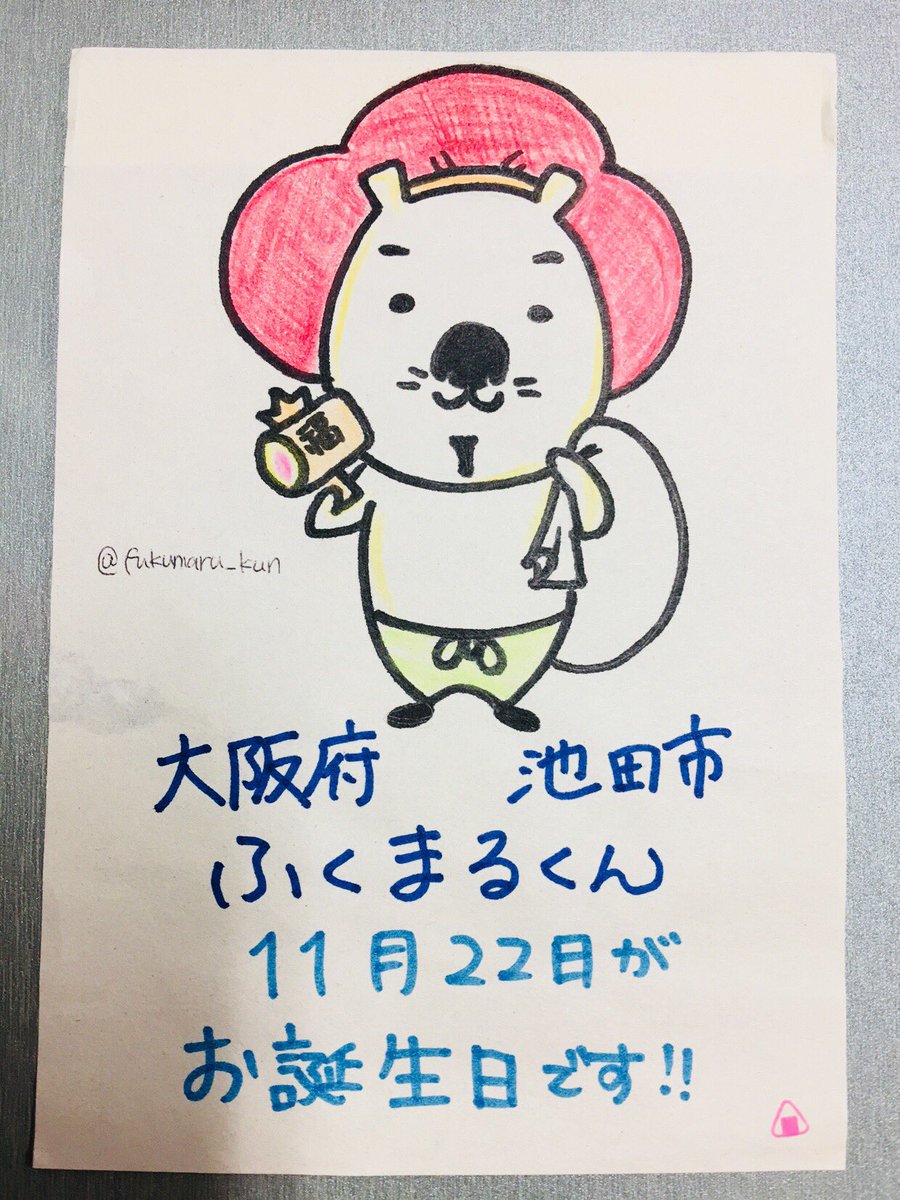 福
@fukumaru_kun
大阪府 池田市
ふくまるくん
11月22日が
お誕生日です!!